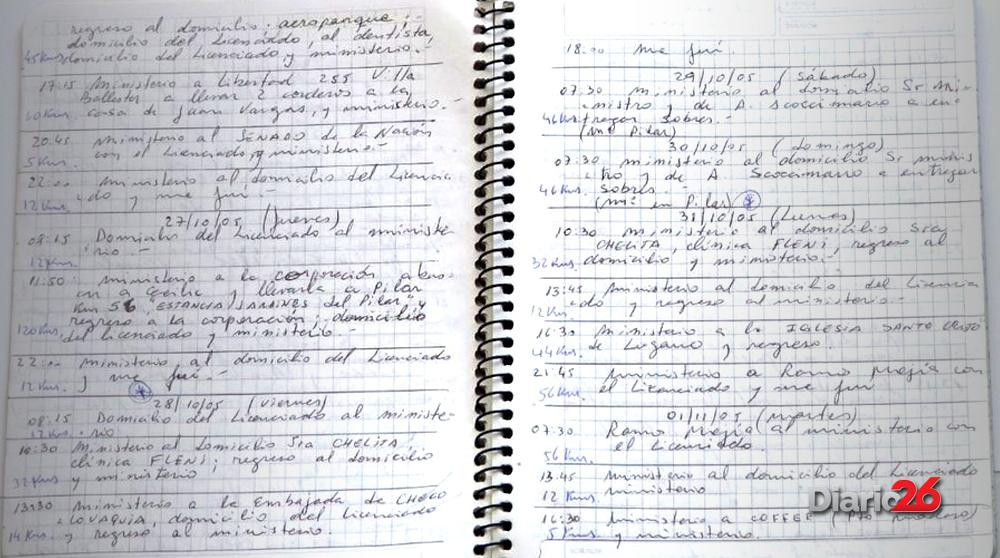 regreso al domicilio; aeroparque;
domicilio del Licenciado, al dentista,
45 Kms. domicilio del Licenciado y ministerio.-
17:15 Ministerio a Libertad 255 Villa
Ballester a llevar 2 corderos a la
casa de Juan Vargas, y ministerio.-
20:45 Ministerio al SENADO de la Nación
5 Kms. con el Licenciado, y ministerio.-
22:00 Ministerio al domicilio del Licencia
12 Kms. do y me fuí.-
27/10/05 (Jueves)
08:15 Domicilio del Licenciado al ministe-
12 Kms. rio.-
11:50 Ministerio a la corporación a bus-
car a y llevarla a Pilar
Km 56 "ESTANCIA JARDINES del Pilar" y
regreso a la corporación; domicilio
120 Kms. del Licenciado y ministerio.-
22:00 Ministerio, al domicilio del Licenciado
12 Kms. y me fuí.-
28/10/05 (viernes)
08:15 Domicilio del Licenciado al ministe-
12 Kms. rio
10:30 Ministerio al Domicilio Sra CHELITA,
clínica FLENI; regreso al domicilio
32 Kms y ministerio
13:30 Ministerio a la Embajada de CHECO
LOVAQUIA, domicilio del Licenciado
14 Kms. y regreso al ministerio.
18:00 me fuí.
29/10/05 (Sábado)
07:30 Ministerio al domicilio Sr Mi-
nistro y de A. Scoccimario a en-
46 Kms. tregar sobres.-
(Pilar)
30/10/05 (domingo)
07:30 Ministerio al domicilio Sr minis
tro y de A Scoccimario a entregar
46 Kms. sobres.-
(en Pilar)
31/10/05 (Lunes)
10:30 Ministerio al domicilio Sra
CHELITA, clínica FLENI, regreso al
32 Kms. domicilio y ministerio.-
13:45 Ministerio al domicilio del Licencia
12 Kms. do y regreso al ministerio.-
16:30 Ministerio a la IGLESIA SANTO CRISTO
44 Kms. de Lugano y regreso.
21:45 Ministerio a Ramos Mejía con
56 Kms. el Licenciado y me fuí
01/11/05 (martes)
07:30 Ramos Mejía al ministerio con
56 Kms. el Licenciado.
13:45 Ministerio al domicilio del Licenciado
12 Kms. y ministerio
16:30 Ministerio a COFEGE
5 Kms y ministerio.
Diario26